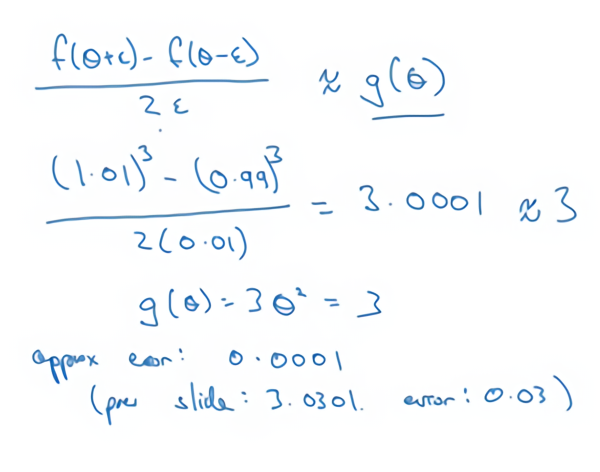 f(θ+ε) - f(θ-ε)
2ε
≈ g(θ)
(1.01)³ - (0.99)³
2(0.01)
= 3.0001 ≈ 3
g(θ) = 3θ² = 3
approx error: 0.0001
(prev slide: 3.0301. error: 0.03)